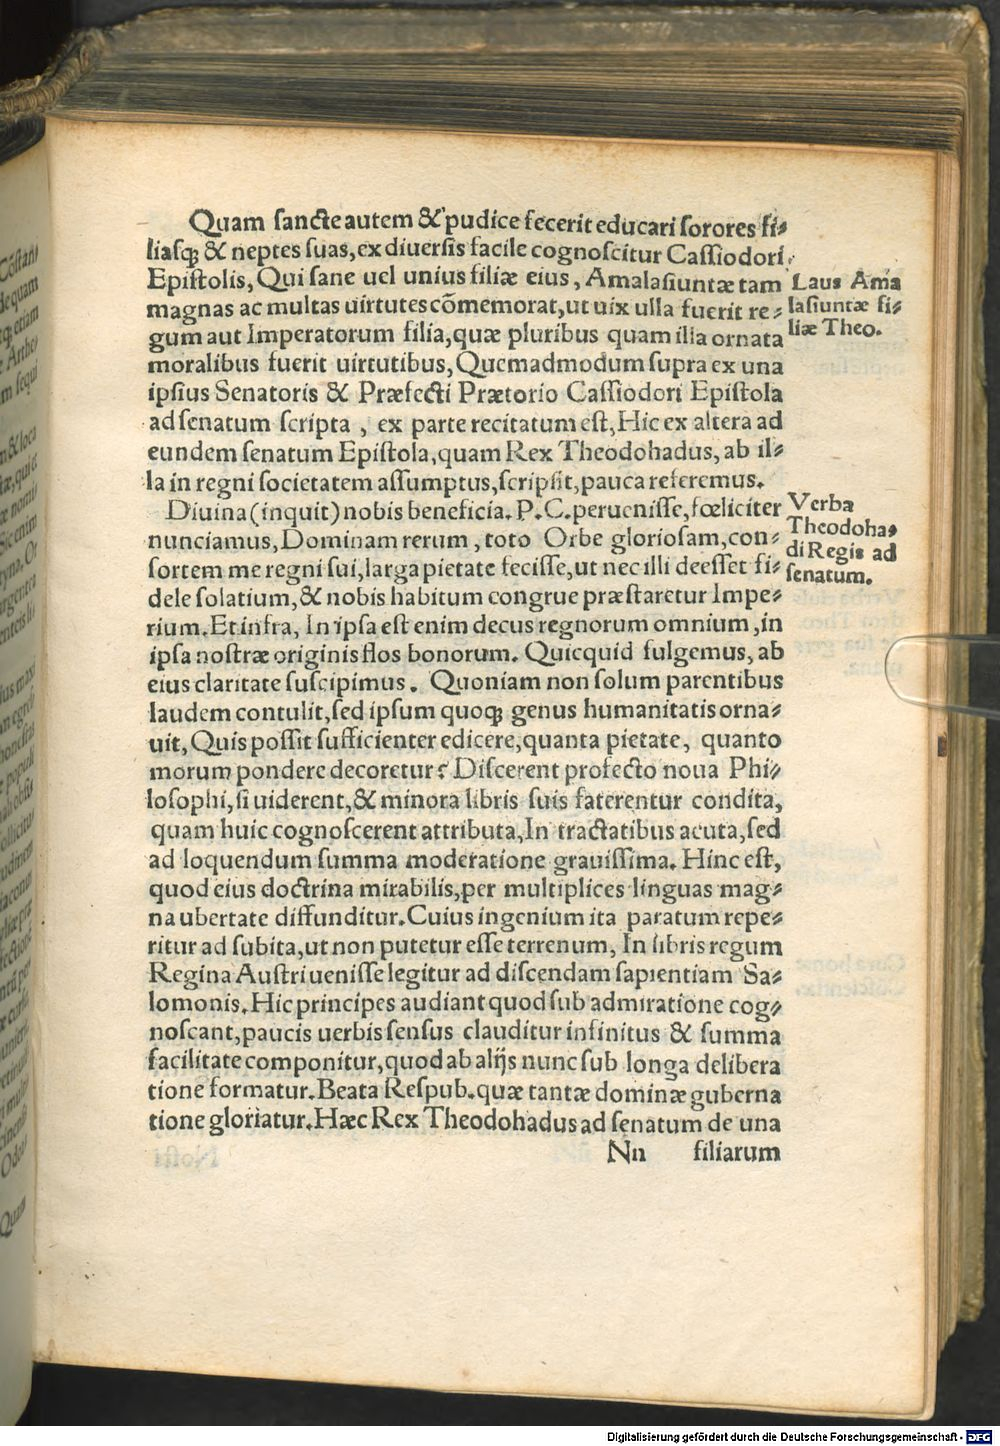 Quam sancte autem & pudice fecerit educari sorores fi⸗
liasq; & neptes suas, ex diuersis facile cognoscitur Cassiodori
Epistolis, Qui sane uel unius filiæ eius, Amalasiuntæ tam
magnas ac multas uirtutes cōmemorat, ut uix ulla fuerit re⸗
gum aut Imperatorum filia, quæ pluribus quam illa ornata
moralibus fuerit uirtutibus, Quemadmodum supra ex una
ipsius Senatoris & Præfecti Prætorio Cassiodori Epistola
ad senatum scripta, ex parte recitatum est, Hic ex altera ad
eundem senatum Epistola, quam Rex Theodohadus, ab il⸗
la in regni societatem assumptus, scripsit, pauca referemus.
Diuina (inquit) nobis beneficia. P. C. peruenisse, fœliciter
nunciamus, Dominam rerum, toto Orbe gloriosam, con⸗
sortem me regni sui, larga pietate fecisse, ut nec illi deesset fi⸗
dele solatium, & nobis habitum congrue præstaretur Impe⸗
rium. Et infra, In ipsa est enim decus regnorum omnium, in
ipsa nostræ originis flos bonorum. Quicquid fulgemus, ab
eius claritate suscipimus. Quoniam non solum parentibus
laudem contulit, sed ipsum quoq; genus humanitatis orna⸗
uit, Quis possit sufficienter edicere, quanta pietate, quanto
morum pondere decoretur? Discerent profecto noua Phi⸗
losophi, si uiderent, & minora libris suis faterentur condita,
quam huic cognoscerent attributa, In tractatibus acuta, sed
ad loquendum summa moderatione grauissima. Hinc est,
quod eius doctrina mirabilis, per multiplices linguas mag⸗
na ubertate diffunditur. Cuius ingenium ita paratum repe⸗
ritur ad subita, ut non putetur esse terrenum, In libris regum
Regina Austri uenisse legitur ad discendam sapientiam Sa⸗
lomonis. Hic principes audiant quod sub admiratione cog⸗
noscant, paucis uerbis sensus clauditur infinitus & summa
facilitate componitur, quod ab alijs nunc sub longa delibera
tione formatur. Beata Respub. quæ tantæ dominæ guberna
tione gloriatur. Hæc Rex Theodohadus ad senatum de una
Nn filiarum
Laus Ama
lasiuntæ fi⸗
liæ Theo.
Verba
Theodoha⸗
di Regis ad
senatum.
Digitalisierung gefördert durch die Deutsche Forschungsgemeinschaft - DFG